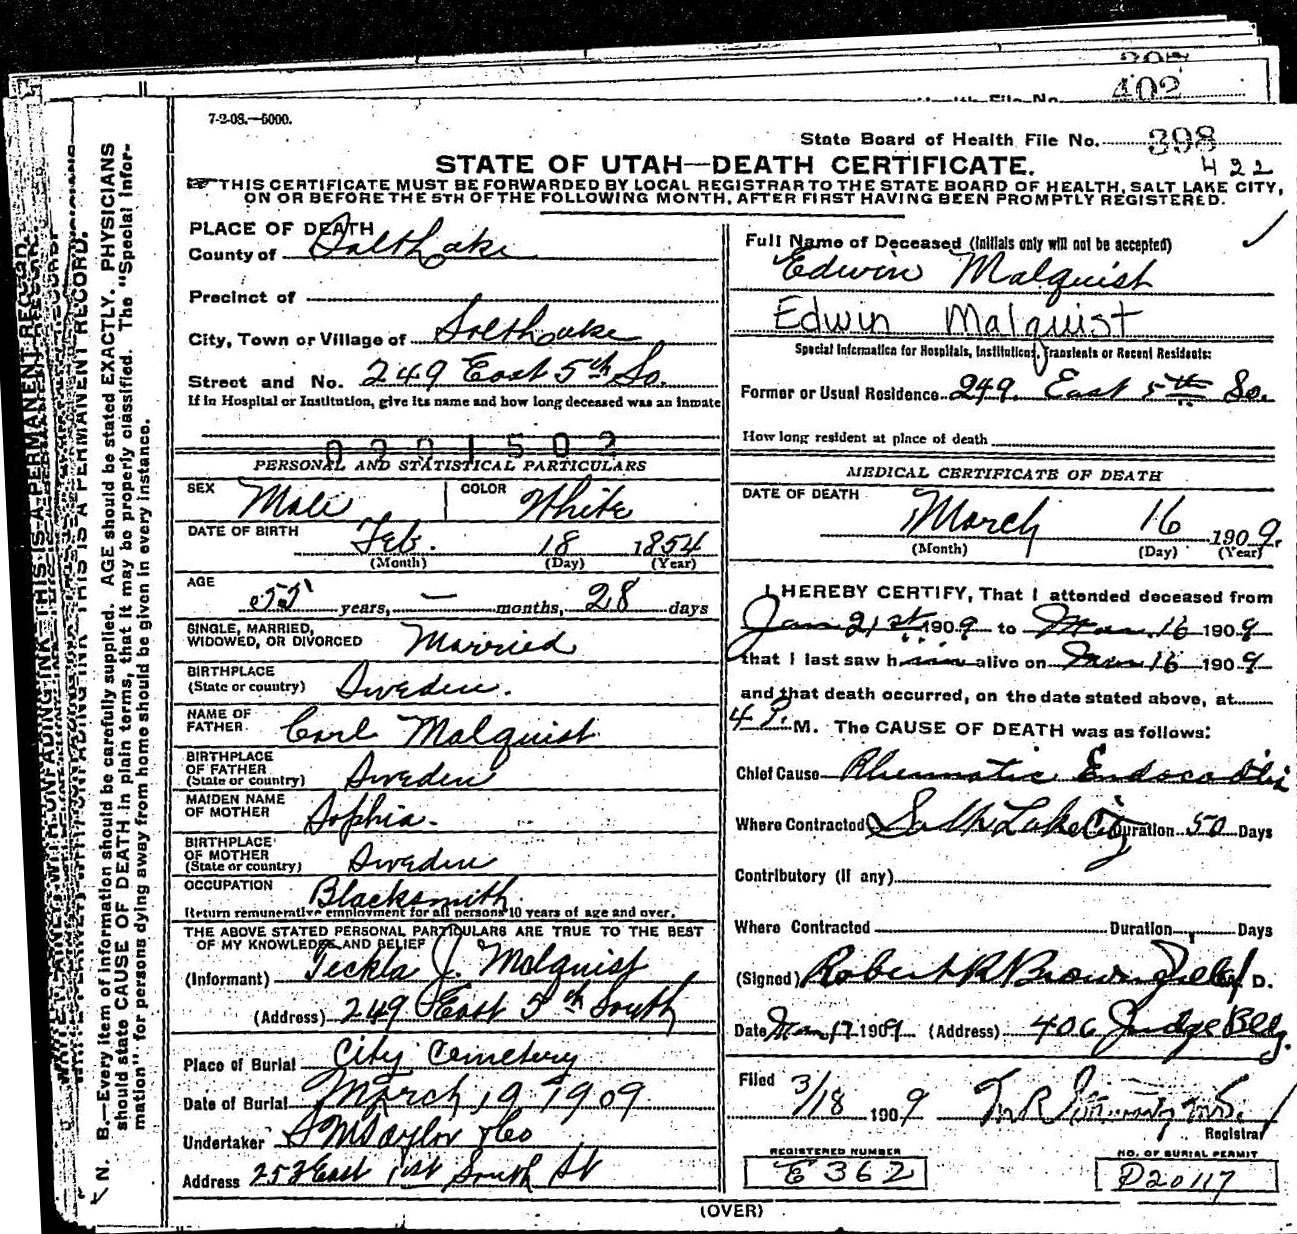 402
7-2-08.—5000.
State Board of Health File No. 398
422
STATE OF UTAH—DEATH CERTIFICATE.
THIS CERTIFICATE MUST BE FORWARDED BY LOCAL REGISTRAR TO THE STATE BOARD OF HEALTH, SALT LAKE CITY,
ON OR BEFORE THE 5TH OF THE FOLLOWING MONTH, AFTER FIRST HAVING BEEN PROMPTLY REGISTERED.
PLACE OF DEATH
County of Salt Lake
Precinct of
City, Town or Village of Salt Lake
Street and No. 249 East 5th So.
If in Hospital or Institution, give its name and how long deceased was an inmate
0201502
PERSONAL AND STATISTICAL PARTICULARS
SEX Male COLOR White
DATE OF BIRTH Feb. 18 1854
(Month) (Day) (Year)
AGE 55 years, — months, 28 days
SINGLE, MARRIED,
WIDOWED, OR DIVORCED Married
BIRTHPLACE
(State or country) Sweden.
NAME OF
FATHER Carl Malquist
BIRTHPLACE
OF FATHER
(State or country) Sweden
MAIDEN NAME
OF MOTHER Sophia.
BIRTHPLACE
OF MOTHER
(State or country) Sweden
OCCUPATION Blacksmith
Return remunerative employment for all persons 10 years of age and over.
THE ABOVE STATED PERSONAL PARTICULARS ARE TRUE TO THE BEST
OF MY KNOWLEDGE AND BELIEF
(Informant) Teckla J. Malquist
(Address) 249 East 5th South
Place of Burial City Cemetery
Date of Burial March 19 1909
Undertaker S M Taylor & Co
Address 252 East 1st South St
Full Name of Deceased (Initials only will not be accepted)
Edwin Malquist
Edwin Malquist
Special Information for Hospitals, Institutions, Transients or Recent Residents:
Former or Usual Residence 249 East 5th So.
How long resident at place of death
MEDICAL CERTIFICATE OF DEATH
DATE OF DEATH
March 16 1909.
(Month) (Day) (Year)
I HEREBY CERTIFY, That I attended deceased from
Jan 21st 1909 to Mar 16 1909
that I last saw him alive on Mar 16 1909
and that death occurred, on the date stated above, at
4 P. M. The CAUSE OF DEATH was as follows:
Chief Cause Rheumatic Endocarditis
Where Contracted Salt Lake City Duration 50 Days
Contributory (if any)
Where Contracted Duration Days
(Signed) Robert R Brownfield D.
Date Mar 17 1909 (Address) 406 Judge Bldg.
Filed 3/18 1909
Registrar
REGISTERED NUMBER
E 362
NO. OF BURIAL PERMIT
D20117
(OVER)
N. B.—Every item of information should be carefully supplied. AGE should be stated EXACTLY. PHYSICIANS
should state CAUSE OF DEATH in plain terms, that it may be properly classified. The "Special Infor-
mation" for persons dying away from home should be given in every instance.